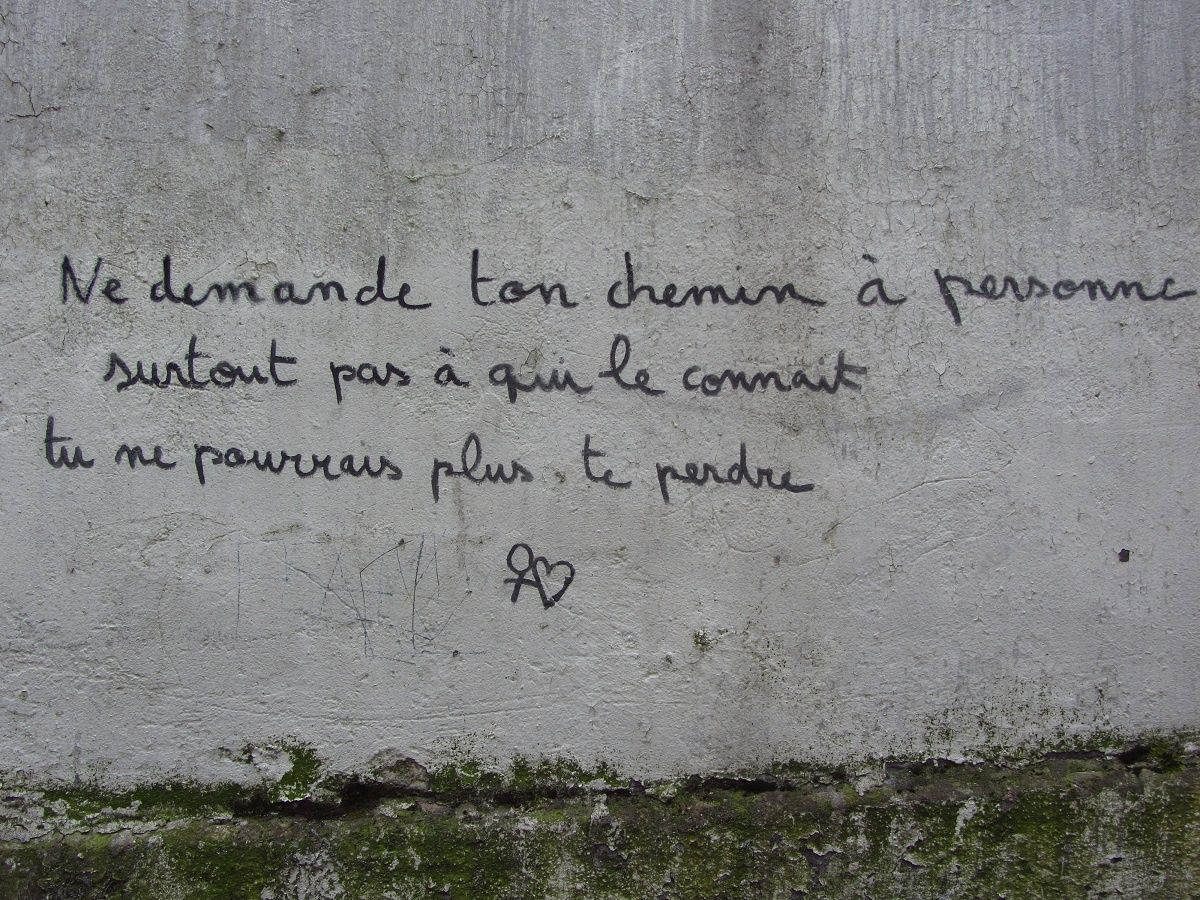 Ne demande ton chemin à personne
surtout pas à qui le connait
tu ne pourrais plus te perdre